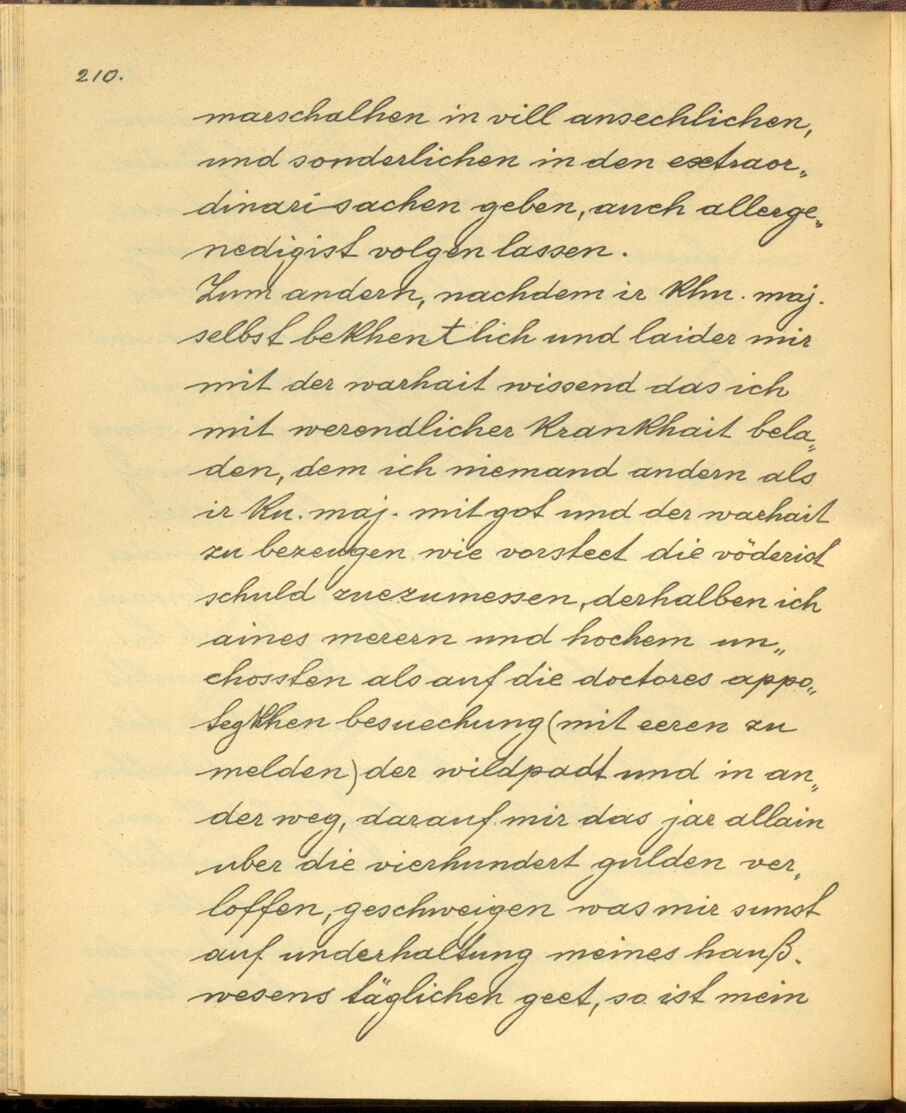 210.
marschalhen in vill ansechlichen,
und sonderlichen in den extraor„
dinari sachen geben, auch allerge„
nedigist volgen lassen.
Zum andern, nachdem ir Khn. maj.
selbst bekhentlich und laider mir
mit der warhait wissend das ich
mit werendlicher Krankhait bela„
den, dem ich niemand andern als
ir Kn. maj. mit got und der warhait
zu bezeugen wie vorsteet die vöderist
schuld zuezumessen, derhalben ich
aines merern und hochem un„
chossten als auf die doctores appo„
tegkhen besuechung (mit eeren zu
melden) der wildpadt und in an„
der weg, darauf mir das jar allain
uber die vierhundert gulden ver„
loffen, geschweigen was mir sunst
auf underhaltung meines hauß-
wesens täglichen geet, so ist mein